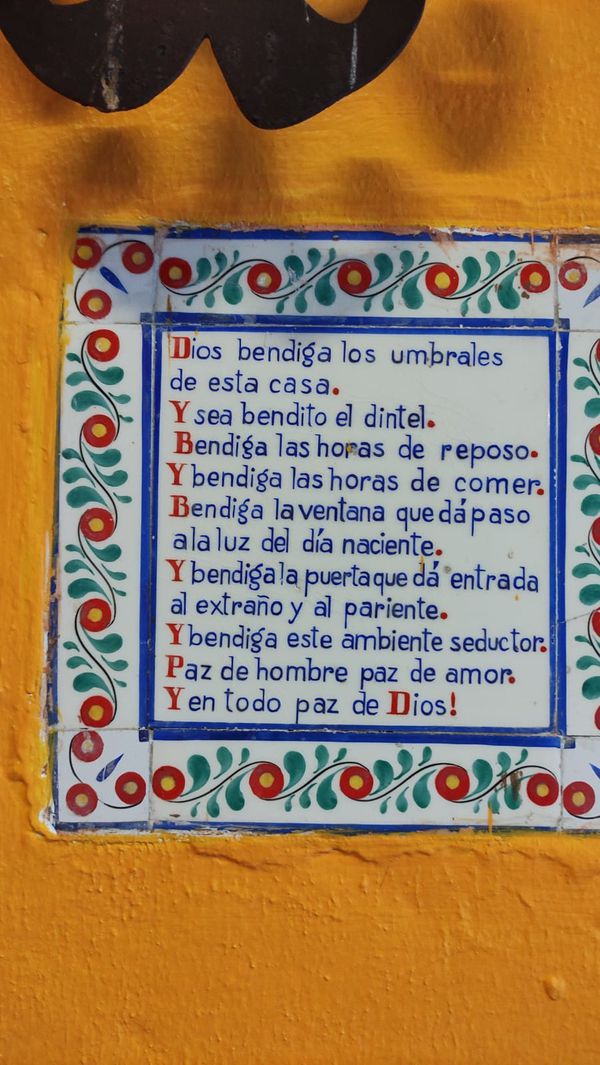 Dios bendiga los umbrales
de esta casa.
Y sea bendito el dintel.
Bendiga las horas de reposo.
Y bendiga las horas de comer.
Bendiga la ventana que dá paso
a la luz del día naciente.
Y bendiga la puerta que dá entrada
al extraño y al pariente.
Y bendiga este ambiente seductor.
Paz de hombre paz de amor.
Y en todo paz de Dios!